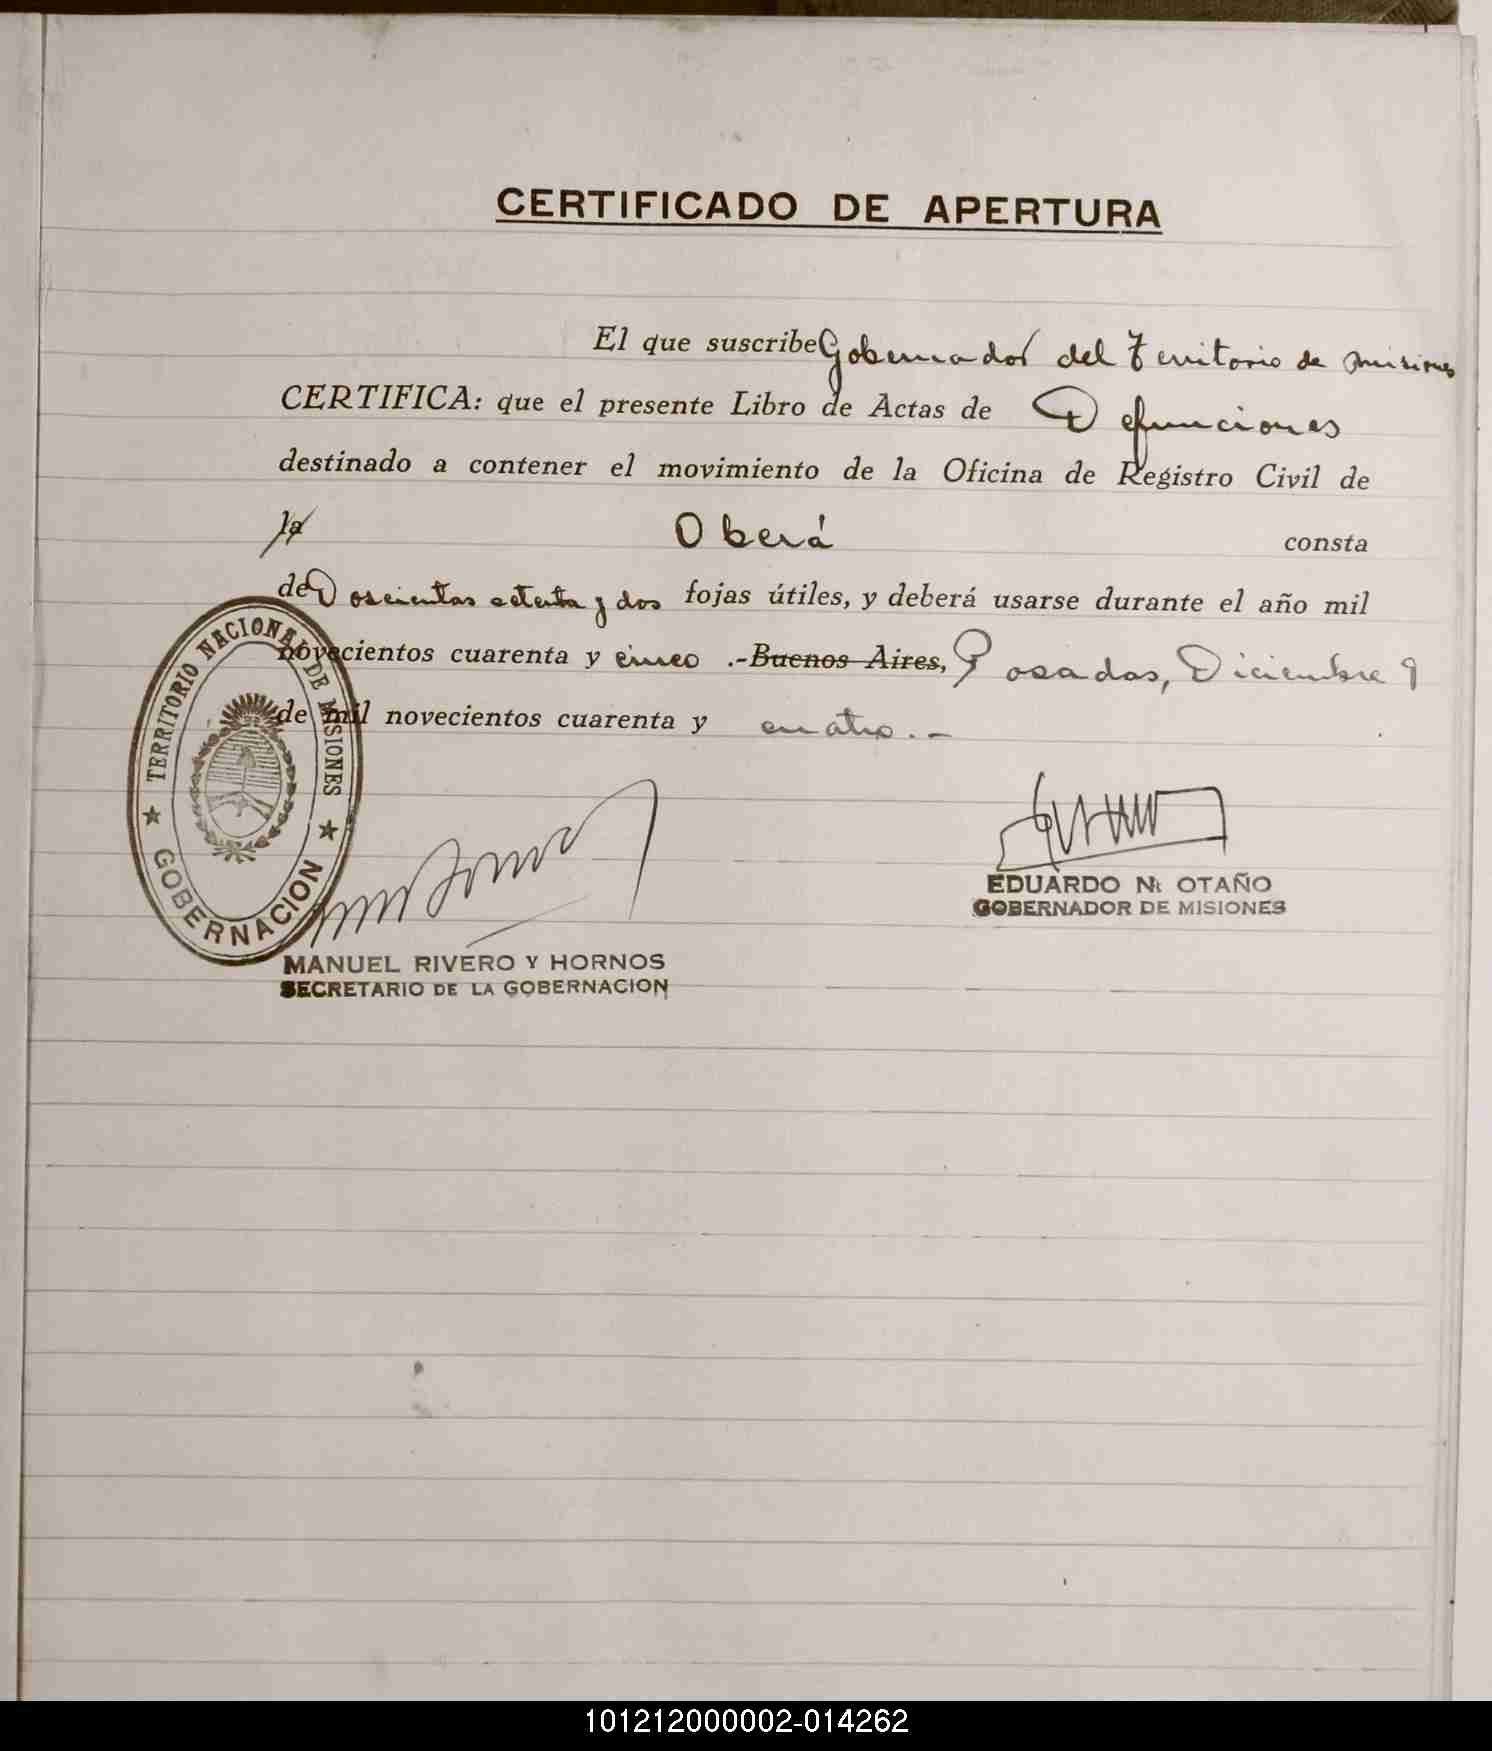 CERTIFICADO DE APERTURA
El que suscribe Gobernador del Territorio de Misiones
CERTIFICA: que el presente Libro de Actas de Defunciones
destinado a contener el movimiento de la Oficina de Registro Civil de
la Oberá consta
de Doscientas setenta y dos fojas útiles, y deberá usarse durante el año mil
novecientos cuarenta y cinco .-Buenos Aires, Posadas, Diciembre 9
de mil novecientos cuarenta y cuatro.-
TERRITORIO NACIONAL DE MISIONES
GOBERNACION
EDUARDO N. OTAÑO
GOBERNADOR DE MISIONES
MANUEL RIVERO Y HORNOS
SECRETARIO DE LA GOBERNACION
101212000002-014262